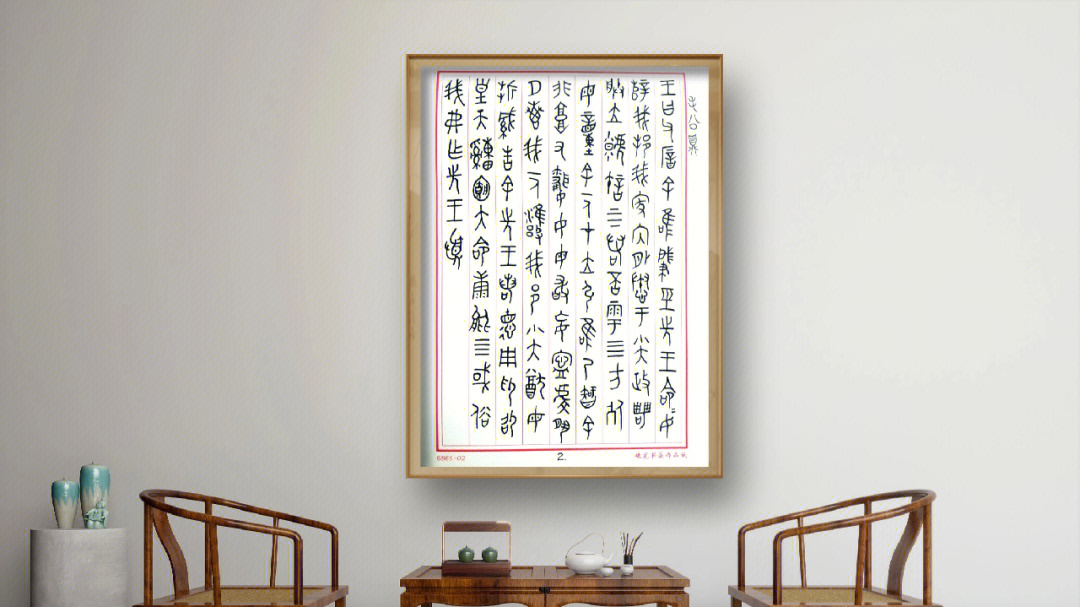 毛公鼎
王曰父厝余唯肇巠先王命女
辥我邦我家内外惷于小大政甹
朕立虩许上下若否雩四方死
母童余一人才立引唯乃智余
非庸又昏女母敢妄宁虔夙
夕惠我一人雝我邦小大猷母
折缄告余先王若德用印邵
皇天申恪大命康能四或俗
我弗乍先王忧
2.